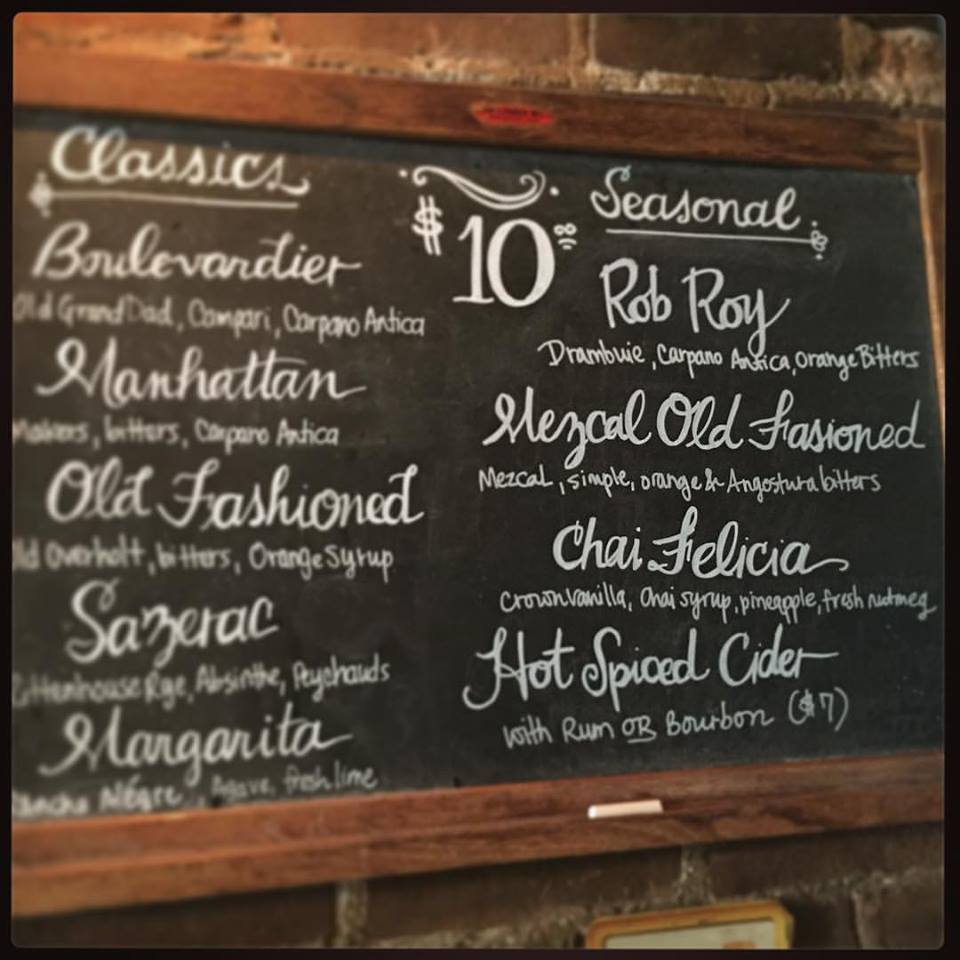 Classics
Boulevardier
Old Grand Dad, Campari, Carpano Antica
Manhattan
Makers, bitters, Carpano Antica
Old Fashioned
Old Overholt, bitters, Orange Syrup
Sazerac
Rittenhouse Rye, Absinthe, Peychauds
Margarita
Rancho Alégre, Agave, fresh lime
$10.00
Seasonal
Rob Roy
Drambuie, Carpano Antica, orange Bitters
Mezcal Old Fasioned
Mezcal, simple, orange & Angostura bitters
Chai Felicia
Crown Vanilla, Chai syrup, pineapple, fresh nutmeg
Hot Spiced Cider
with Rum OR Bourbon ($7)